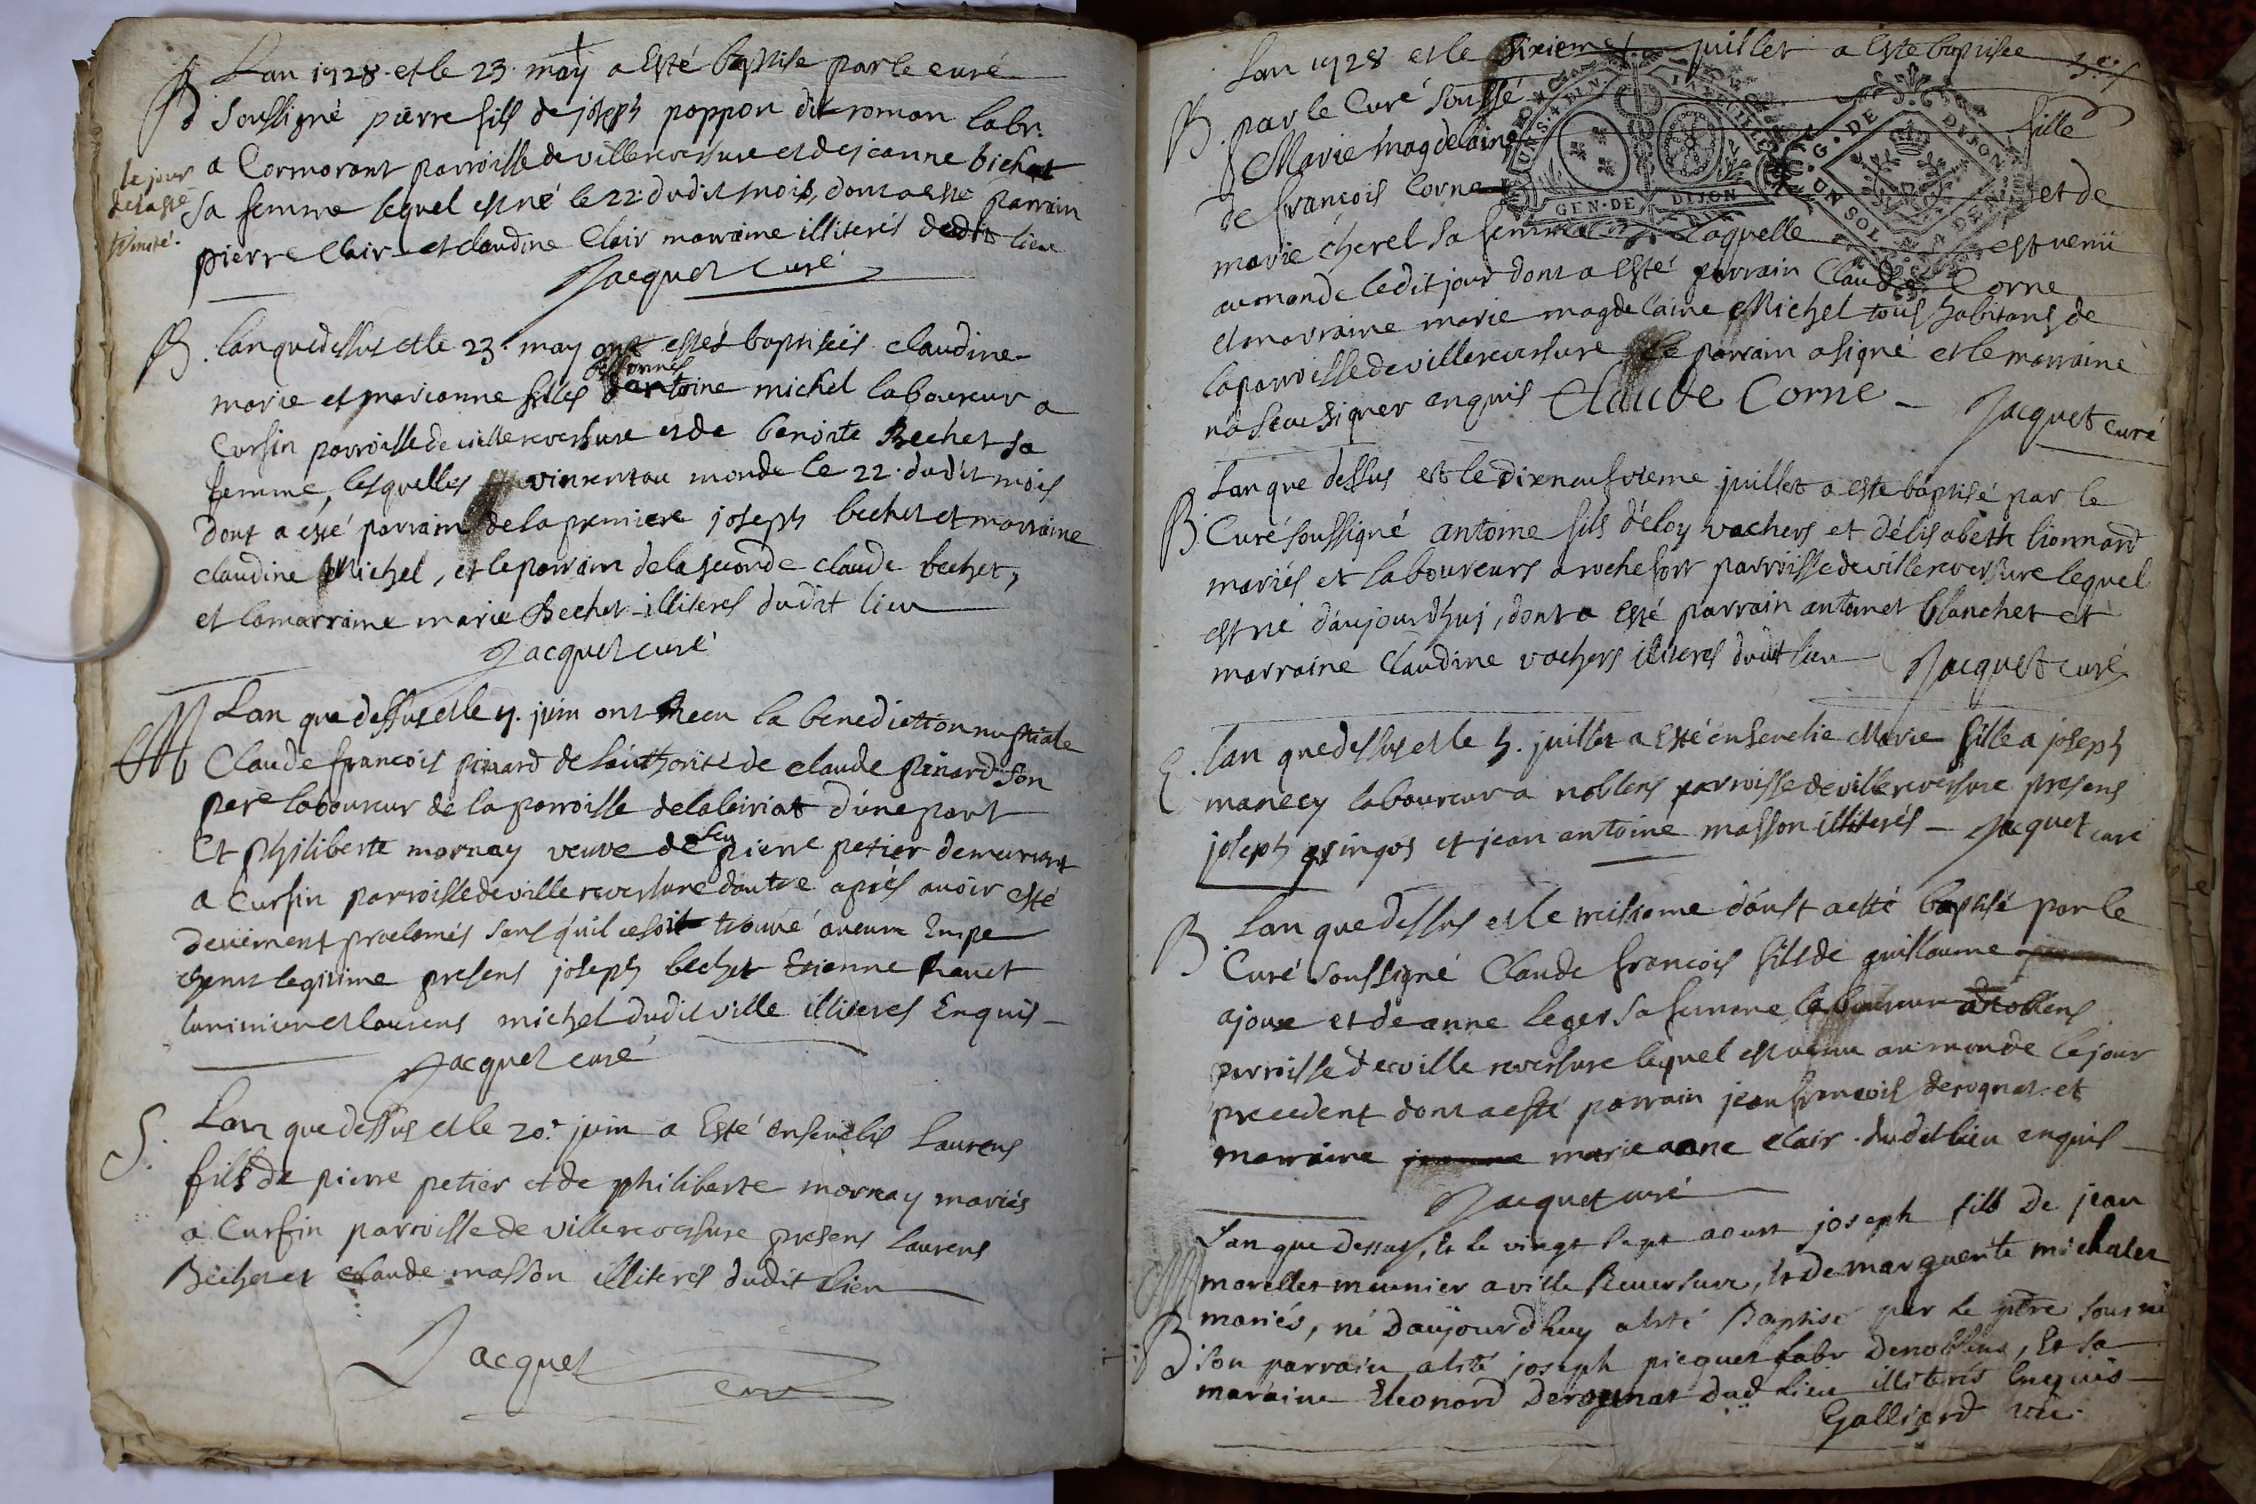 B Lan 1728 et le 23. may a Esté baptisé par le curé
Soussigné pierre fils de joseph poppon dit roman labr.
a Cormorant parroisse de villereversure et de jeanne bichat
le jour
de la ste
trinité.
sa femme lequel est né le 22. dudit mois, dont a esté parrain
pierre Clair et claudine Clair marraine illiterés dudit lieu
Jacquet curé
B. Lan que dessus et le 23. may ont estés baptiseés claudine
marie et marianne filles d'antoine michel laboureur a
Cursin parroisse de villereversure et de benoite Bechet sa
femme, lesquelles vinrent au monde le 22. dudit mois
dont a esté parrain de la premiere joseph bechet et marraine
claudine Michel, et le parrain de la seconde claude bechet,
et la marraine marie Bechet illiterés dudit lieu
Jacquet curé
M Lan que dessus et le 7. juin ont Receu la benediction nuptiale
Claude francois pinard de l'authorité de claude pinard son
pere laboureur de la parroisse de la leiriat d'une part
Et philiberte mornay veuve de feu pierre petier demeurant
a Cursin parroisse de villereversure d'autre aprés avoir esté
deuëment proclamés sans qu'il ce soit trouvé aucun Empe
chemt legitime presens joseph bechet Etienne
et laurens michel dudit ville illiterés Enquis
Jacquet curé
S. Lan que dessus et le 20. juin a Esté ensevelis laurens
fils de pierre petier et de philiberte mornay mariés
a Cursin parroisse de villereversure presens laurens
Bechet et claude masson illiterés dudit lieu
Jacquet
curé
Lan 1728 et le Sixieme juillet a Este baptisee
B. par le Curé soussé
Marie magdelaine fille
de françois Corne et de
GEN·DE DIJON
G.DE DIJON
UN SOL
marie cherel sa femme laquelle est venu
au monde ledit jour dont a Esté parrain Claude Corne
et marraine marie magdelaine Michel tous habitans de
la parroisse de villereversure le parrain a signé et le marraine
na sceu signer enquis Claude Corne
Jacquet curé
B Lan que dessus et le Dixneufvieme juillet a este baptisé par le
Curé soussigné antoine fils d'eloy vachers et d'elisabeth lionnard
mariés et laboureurs a rochefort parroisse de villereversure lequel
est né d'aujourdhuj, dont a esté parrain antoinet blanchet et
marraine Claudine vachers illiterés dudit lieu Jacquet curé
E. lan que dessus et le 5. juillet a Esté ensevelie Marie fille a joseph
manecy laboureur a noblens parroisse de villereversure presens
joseph et jean antoine masson illiterés Jacquet curé
B. Lan que dessus et le troisieme d'aoust a esté baptisé par le
Curé soussigné Claude francois fils de guillaume
ajoux et de anne leger sa femme laboureur a noblens
parroisse de ville reversure lequel est venu au monde le jour
precedent dont a esté parrain jean francois derognat et
marraine marie anne clair dudit lieu enquis
Jacquet curé
Lan que dessus, et le vingt sept aoust joseph fils de jean
morellet meunier a ville Reversure, et de marguerite michalet
B mariés, né d'aujourdhuy a été Baptisé par le ptre soussné
son parrain a été joseph picquet labr de noblens, et sa
maraine Eleonord Derognat dud lieu illiterés Enquis
Galliard vic.